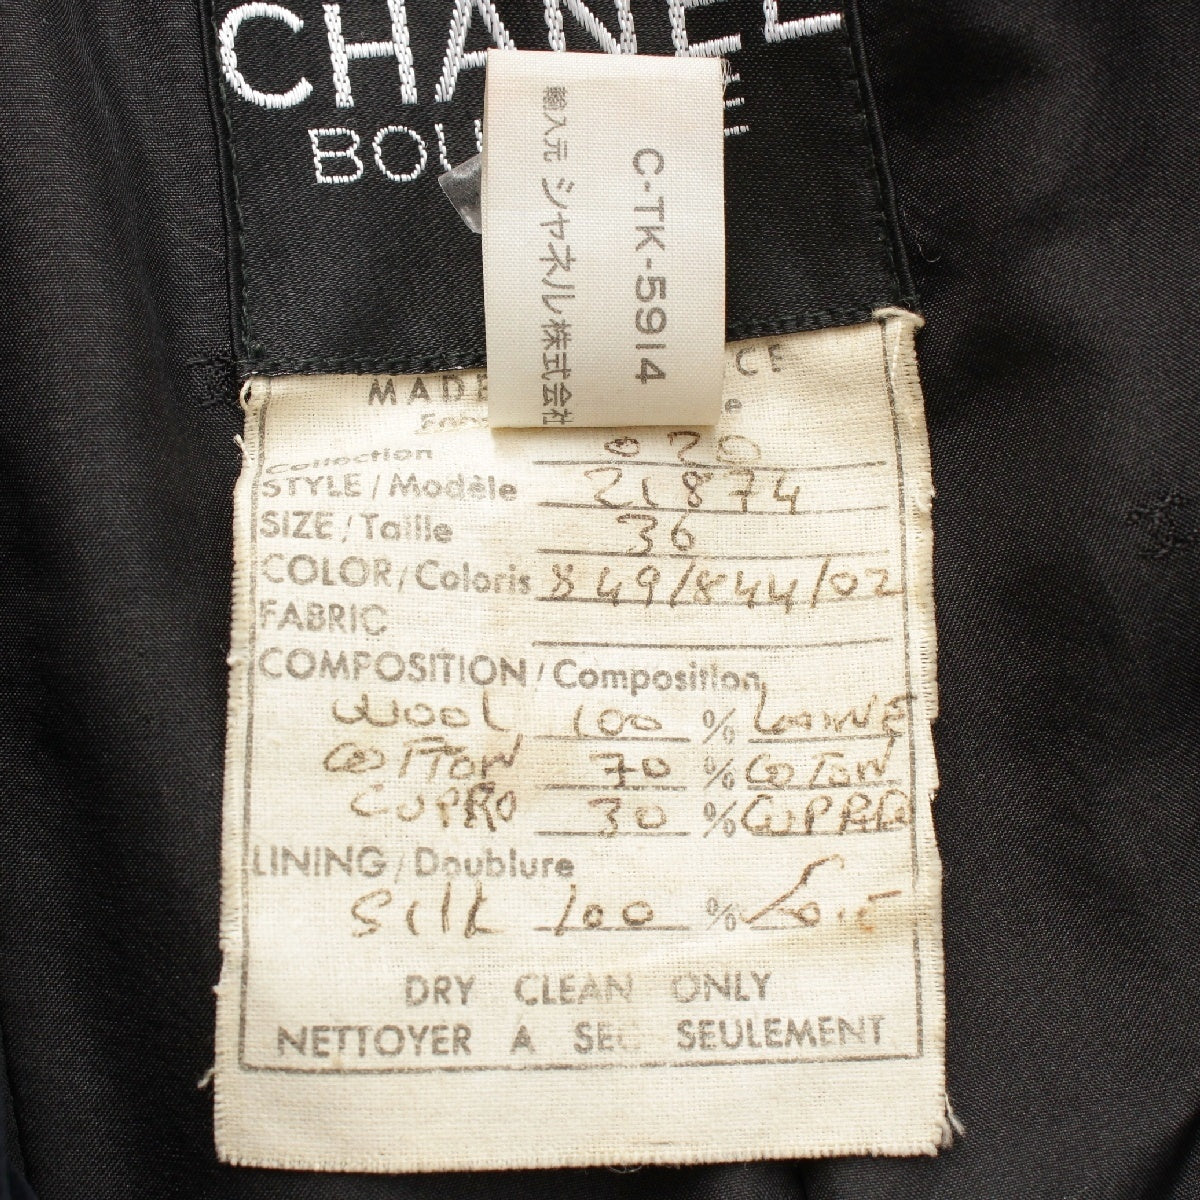 CHANEL
BOU E
輸入元 シャネル株式会社
C-TK-5914
MADE CE
Collection 020
STYLE/Modèle 21874
SIZE/Taille 36
COLOR/Coloris 849/844/02
FABRIC
COMPOSITION/Composition
WOOL 100 % LAINE
COTTON 70 % COTON
CUPRO 30 % CUPRO
LINING/Doublure
Silk 100 % Soie
DRY CLEAN ONLY
NETTOYER A SEC SEULEMENT